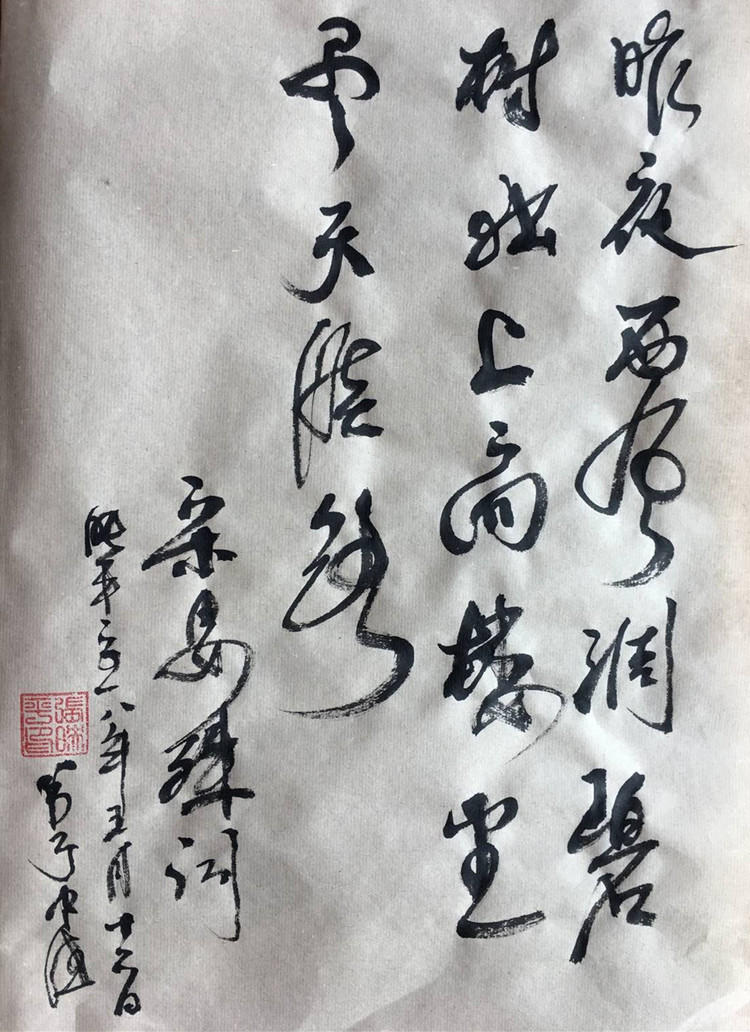 昨夜西风凋碧
树独上高楼望
尽天涯路
宋晏殊词
平二〇一八年五月十日
书于